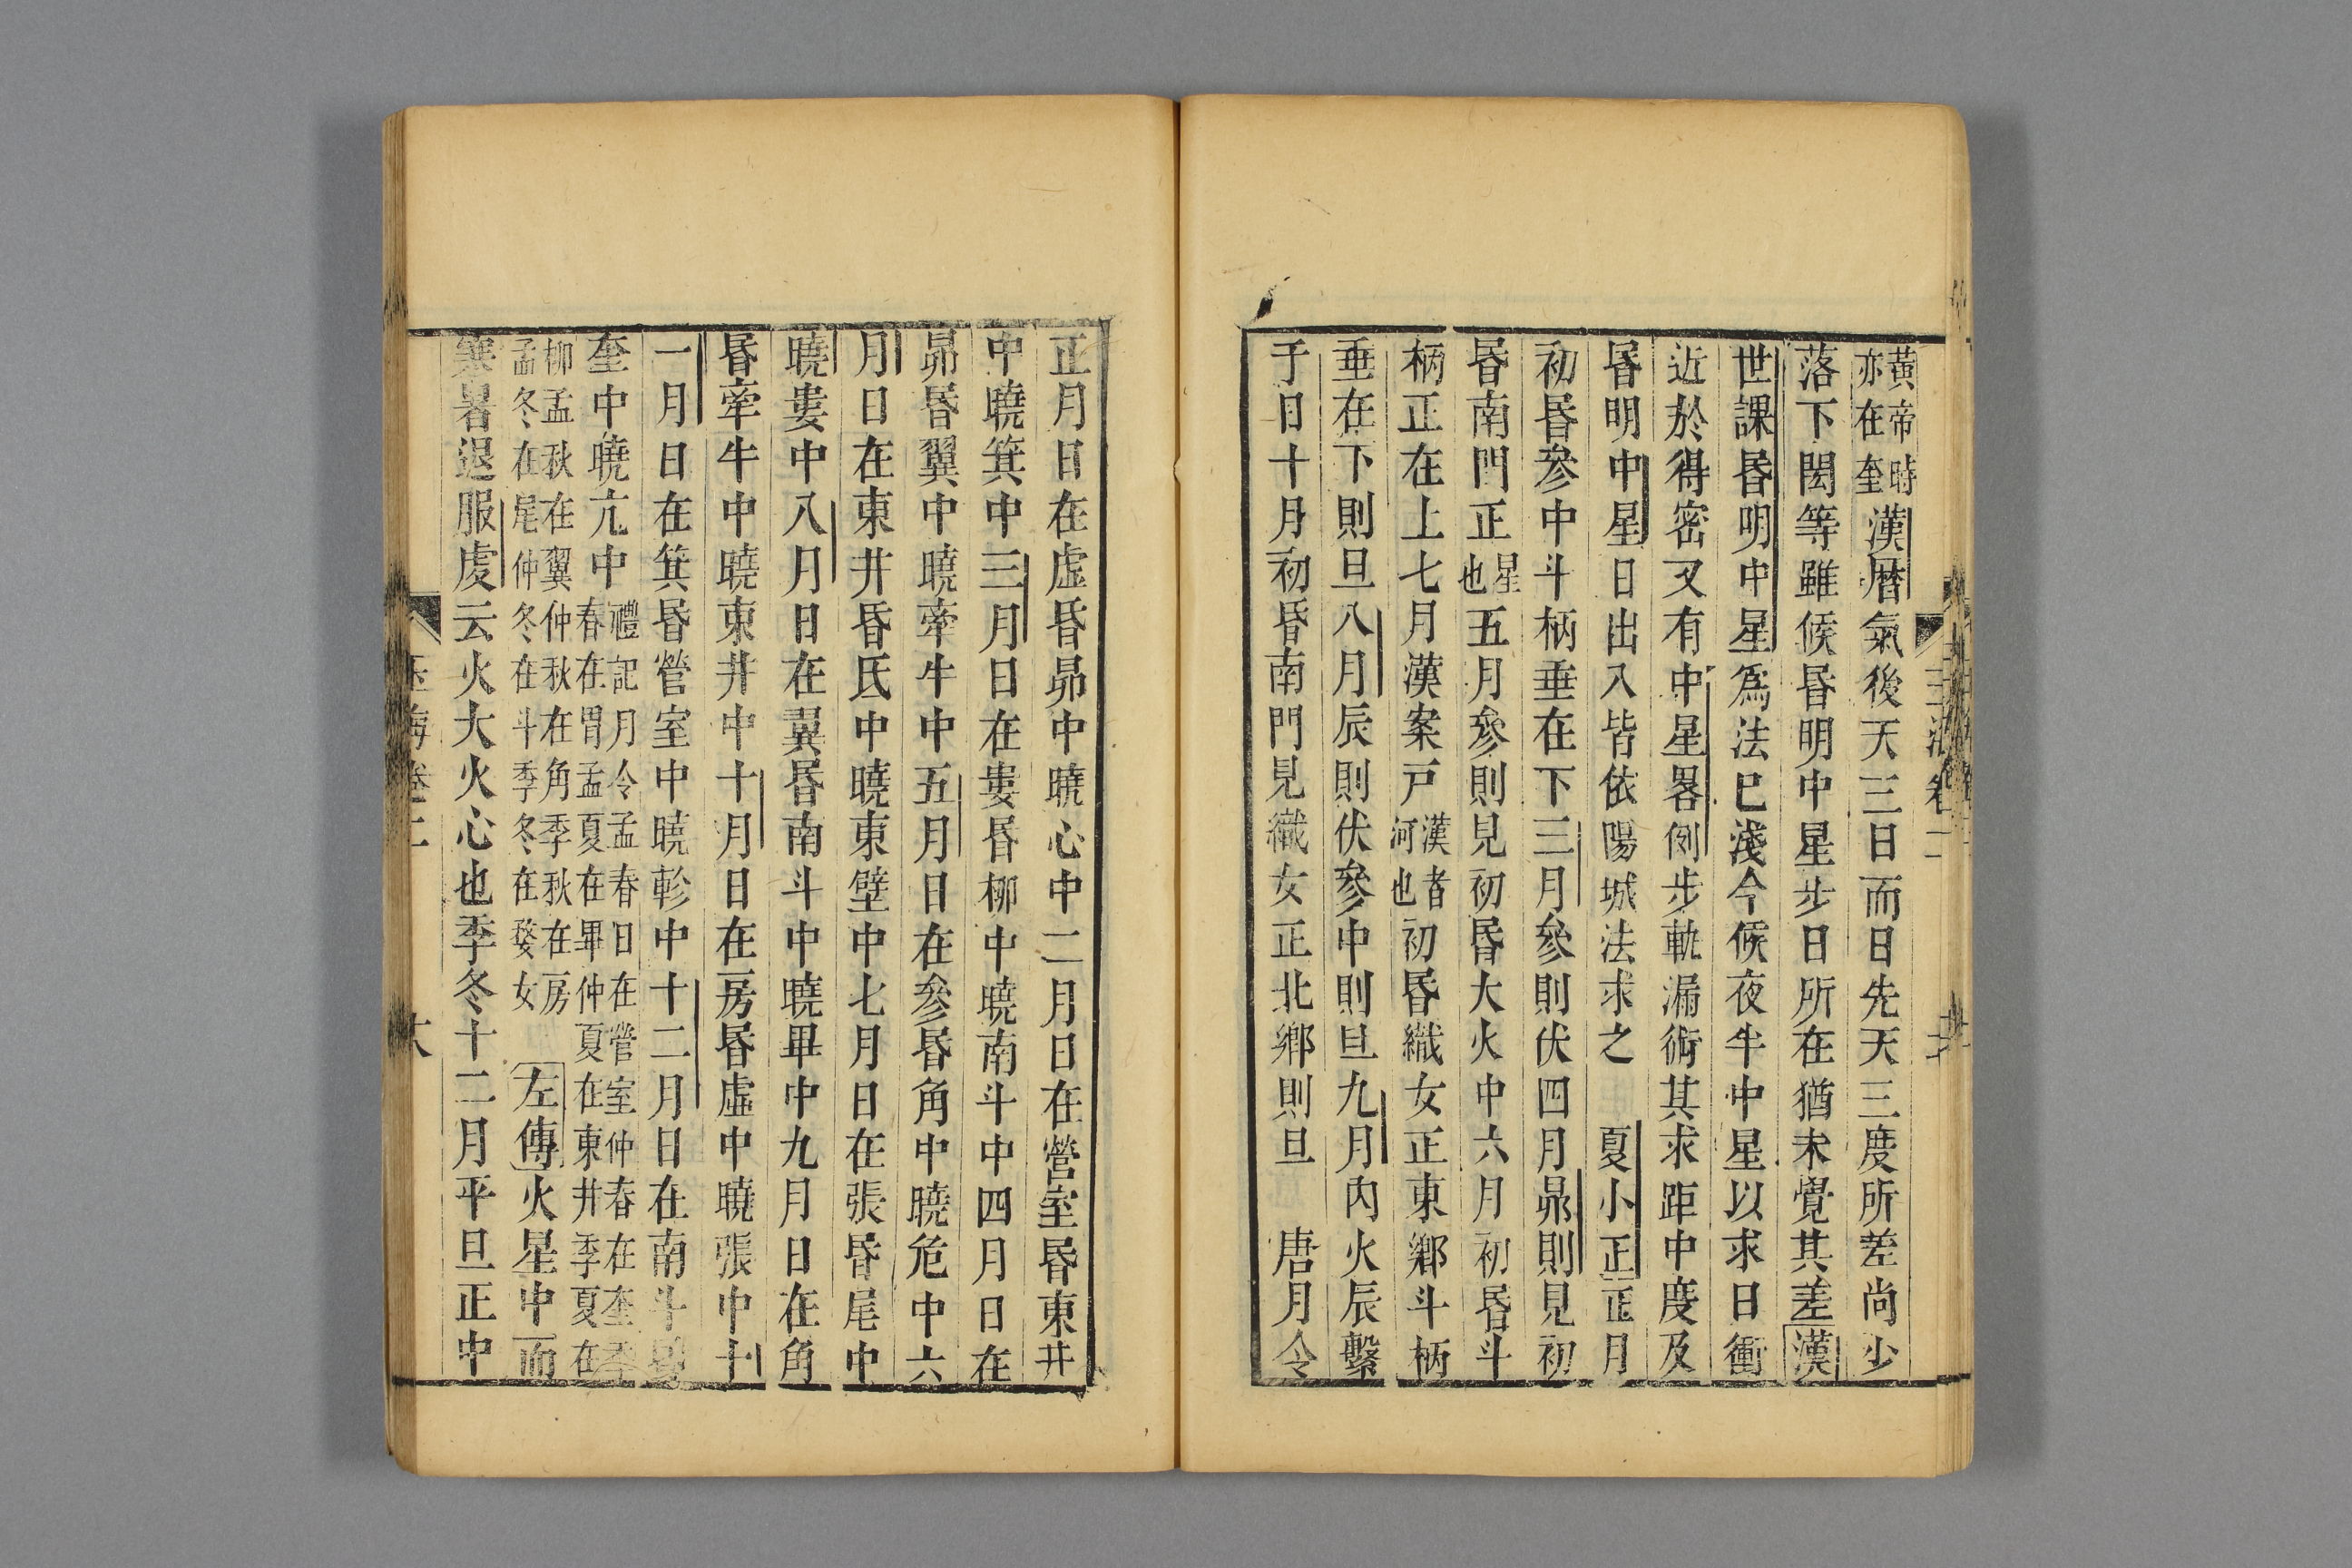 黃帝時
亦在奎
漢曆氣後天三日而日先天三度所差尚少
落下閎等雖候昏明中星步日所在猶未覺其差漢
世課昏明中星爲法巳淺今候夜半中星以求日衝
近於得密又有中星畧例步軌漏術其求距中度及
昏明中星日出入皆依陽城法求之　夏小正正月
初昏參中斗柄垂在下三月參則伏四月昴則見初
昏南門正星也五月參則見初昏大火中六月初昏斗
柄正在上七月漢案戸漢者河也初昏織女正東鄉斗柄
垂在下則旦八月辰則伏參中則旦九月内火辰繫
于日十月初昏南門見織女正北鄉則旦　唐月令
正月日在虛昏昴中曉心中二月日在營室昏東井
中曉箕中三月日在婁昏柳中曉南斗中四月日在
昴昏翼中曉牽牛中五月日在參昏角中曉危中六
月日在東井昏氐中曉東壁中七月日在張昏尾中
曉婁中八月日在翼昏南斗中曉畢中九月日在角
昏牽牛中曉東井中十月日在房昏虛中曉張中十
一月日在箕昏營室中曉軫中十二月日在南斗昏
奎中曉亢中
禮記月令孟春日在營室仲春在奎季
春在胃孟夏在畢仲夏在東井季夏在
柳孟秋在翼仲秋在角季秋在房
孟冬在尾仲冬在斗季冬在婺女
左傳火星中而
寒暑退服虔云火大火心也季冬十二月平旦正中
玉海卷二